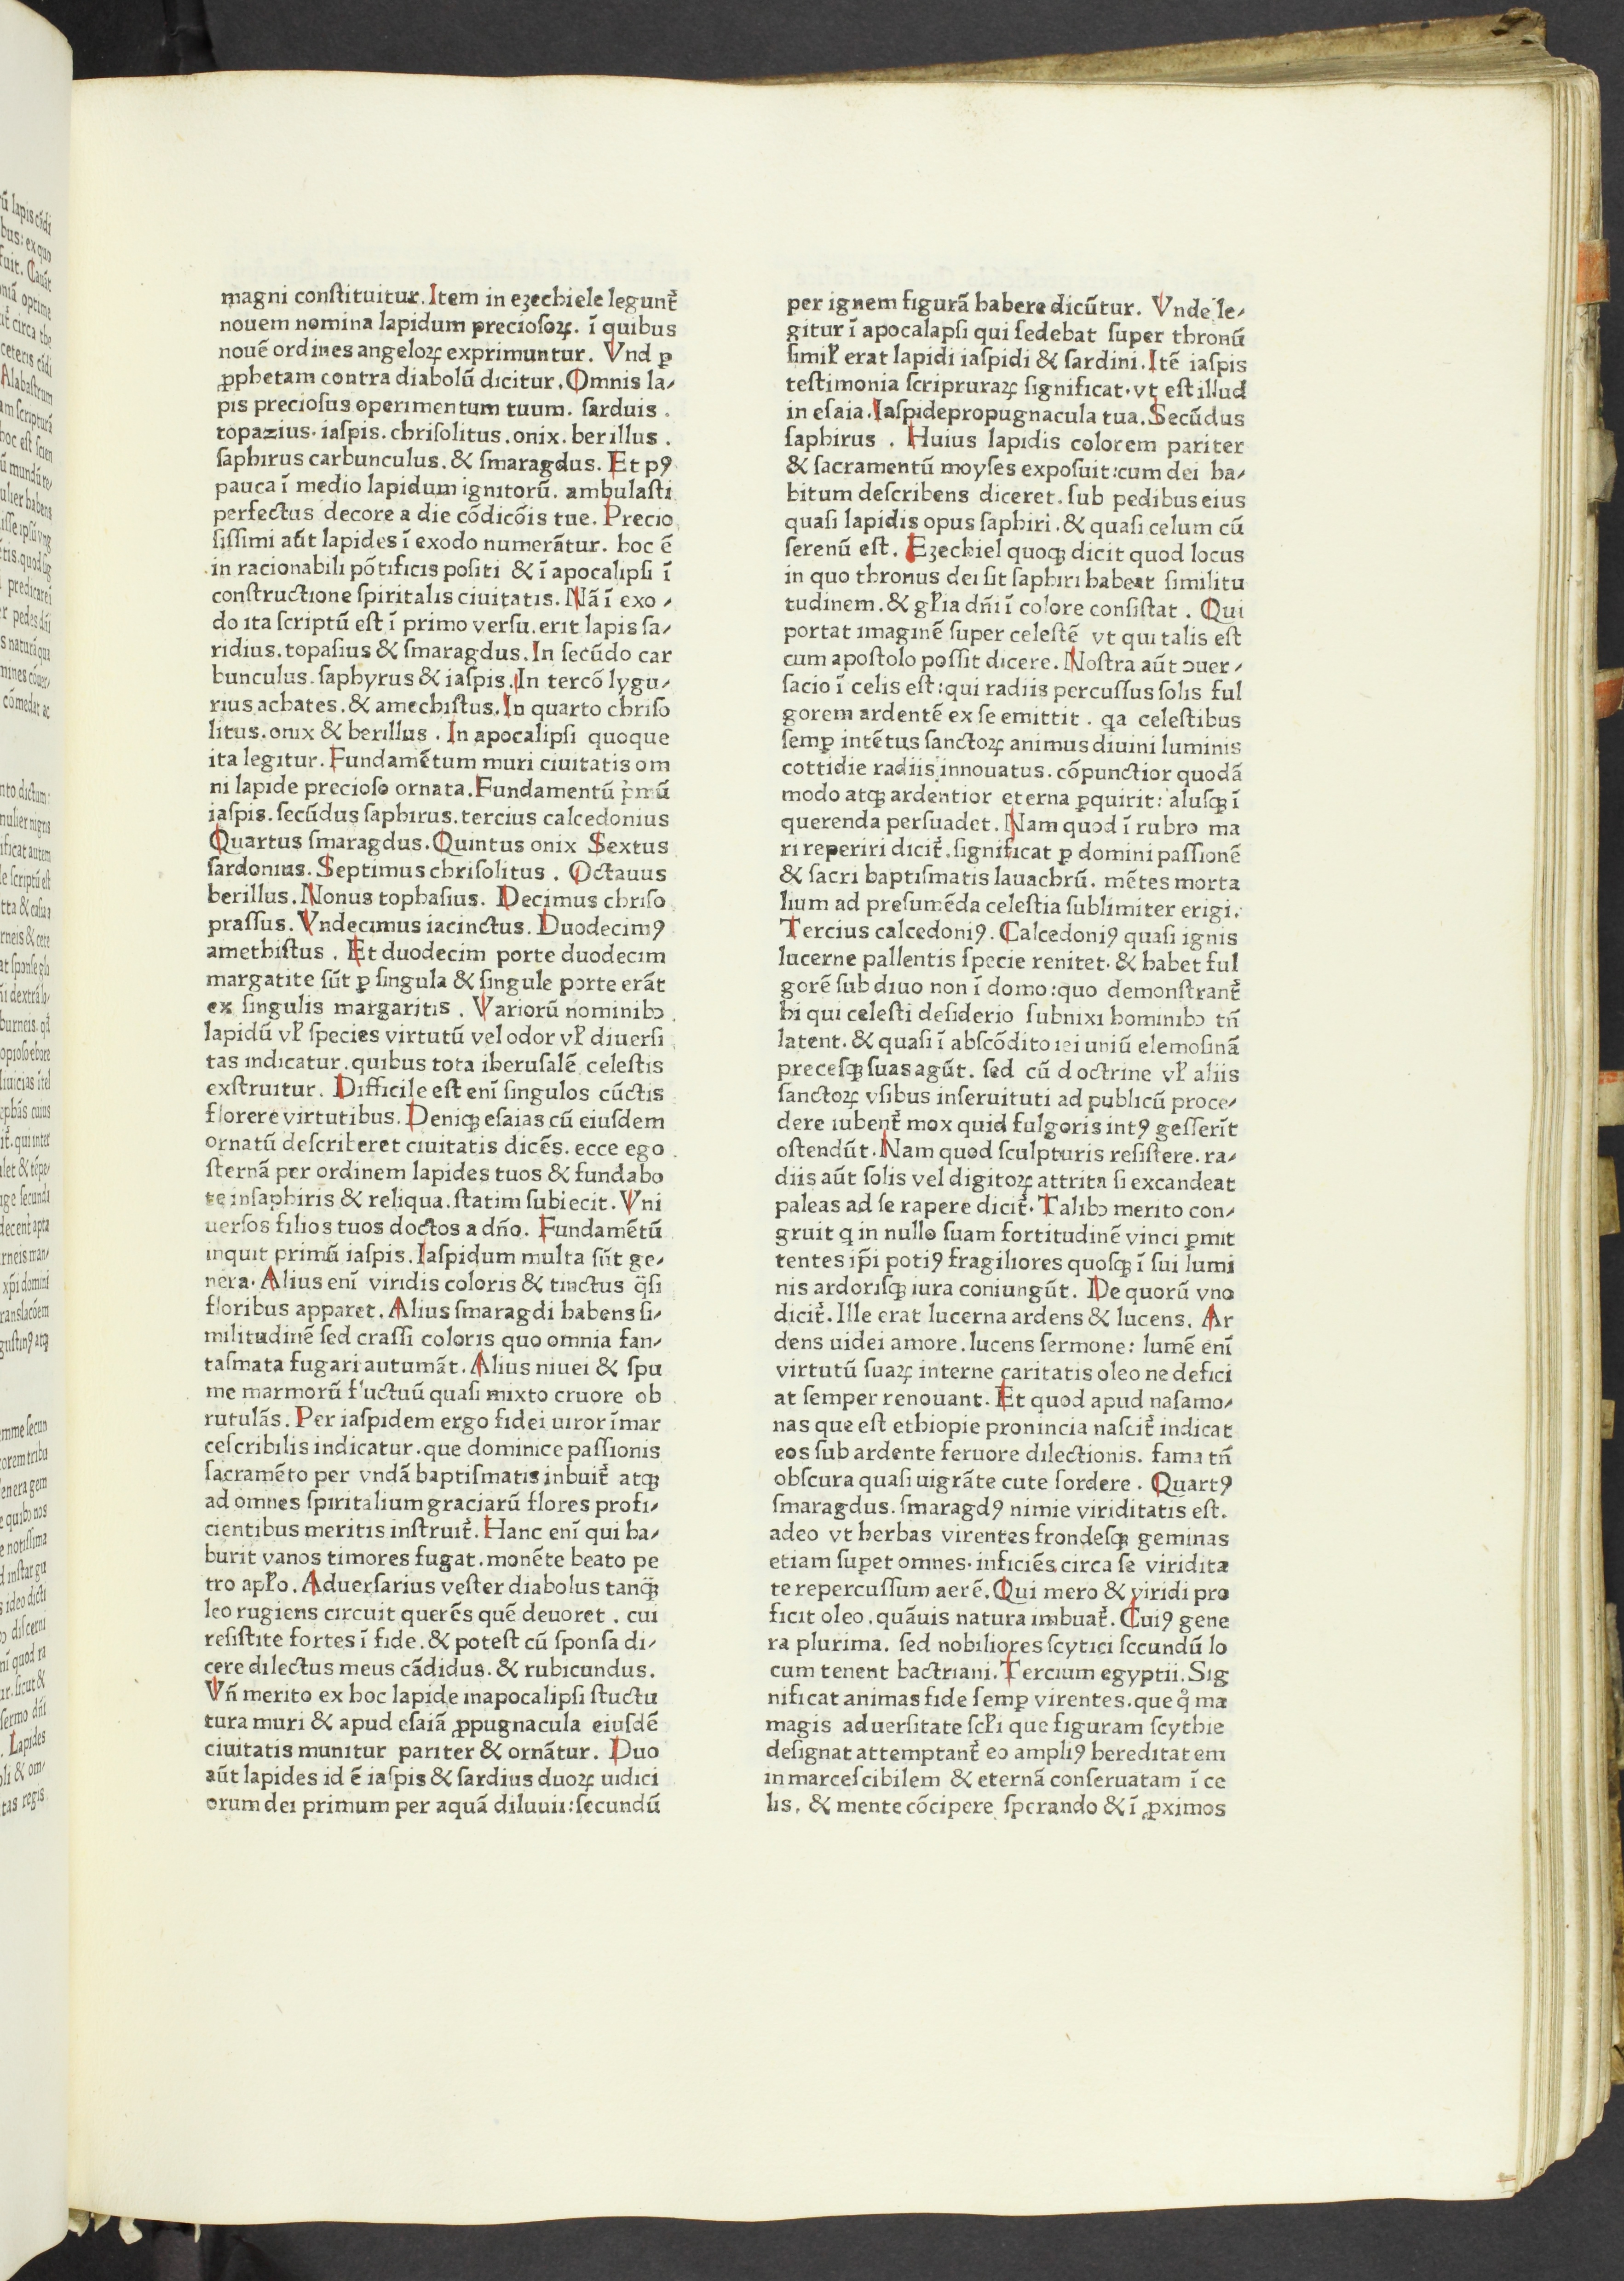 magni conſtituitur. Item in ezechiele leguntᷣ
nouem nomina lapidum precioſoꝝ. ī quibus
nouē ordines angeloꝝ exprimuntur. Vnd ꝑ
ꝓphetam contra diabolū dicitur. Omnis la⸗
pis precioſus operimentum tuum. ſarduis.
topazius. iaſpis. chriſolitus. onix. berillus.
ſaphirus carbunculus. & ſmaragdus. Et pꝰ
pauca ī medio lapidum ignitorū. ambulaſti
perfectus decore a die cōdicōis tue. Precio
ſiſſimi aūt lapides ī exodo numerātur. hoc ē
in racionabili pōtificis poſiti & ī apocalipſi ī
conſtructione ſpiritalis ciuitatis. Nā ī exo⸗
do ita ſcriptū eſt ī primo verſu. erit lapis ſa⸗
ridius. topaſius & ſmaragdus. In ſecūdo car
bunculus. ſaphyrus & iaſpis. In tercō lygu⸗
rius achates. & amechiſtus. In quarto chriſo
litus. onix & berillus. In apocalipſi quoque
ita legitur. Fundamētum muri ciuitatis om
ni lapide precioſo ornata. Fundamentū pͥmū
iaſpis. ſecūdus ſaphirus. tercius calcedonius
Quartus ſmaragdus. Quintus onix Sextus
ſardonius. Septimus chriſolitus. Octauus
berillus. Nonus tophaſius. Decimus chriſo
praſſus. Vndecimus iacinctus. Duodecimꝰ
amethiſtus. Et duodecim porte duodecim
margatite ſūt ꝑ ſingula & ſingule porte erāt
ex ſingulis margaritis. Variorū nominibꝫ
lapidū vꝉ ſpecies virtutū vel odor vꝉ diuerſi
tas indicatur. quibus tota iheruſalē celeſtis
exſtruitur. Difficile eſt enī ſingulos cūctis
florere virtutibus. Deniqꝫ eſaias cū eiuſdem
ornatū deſcriberet ciuitatis dicēs. ecce ego
ſternā per ordinem lapides tuos & fundabo
te inſaphiris & reliqua. ſtatim ſubiecit. Vni
uerſos filios tuos doctos a dn̄o. Fundamētū
inquit primū iaſpis. Iaſpidum multa ſūt ge⸗
nera. Alius enī viridis coloris & tinctus q̄ſi
floribus apparet. Alius ſmaragdi habens ſi⸗
militudinē ſed craſſi coloris quo omnia fan⸗
taſmata fugari autumāt. Alius niuei & ſpu
me marmorū fluctuū quaſi mixto cruore ob
rutulās. Per iaſpidem ergo fidei uiror īmar
ceſcribilis indicatur. que dominice paſſionis
ſacramēto per vndā baptiſmatis inbuitᷣ atqꝫ
ad omnes ſpiritalium graciarū flores profi⸗
cientibus meritis inſtruitᷣ. Hanc enī qui ha⸗
burit vanos timores fugat. monēte beato pe
tro apꝉo. Aduerſarius veſter diabolus tanqꝫ̄
leo rugiens circuit querēs quē deuoret. cui
reſiſtite fortes ī fide. & poteſt cū ſponſa di⸗
cere dilectus meus cādidus. & rubicundus.
Vn̄ merito ex hoc lapide inapocalipſi ſtuctu
tura muri & apud eſaiā ꝓpugnacula eiuſdē
ciuitatis munitur pariter & ornātur. Duo
aūt lapides id ē iaſpis & ſardius duoꝝ uidici
orum dei primum per aquā diluuii: ſecundū
per ignem figurā habere dicūtur. Vnde le⸗
gitur ī apocalapſi qui ſedebat ſuper thronū
ſimiꝉ erat lapidi iaſpidi & ſardini. Itē iaſpis
teſtimonia ſcripruraꝝ ſignificat. vt eſt illud
in eſaia. Iaſpidepropugnacula tua. Secūdus
ſaphirus. Huius lapidis colorem pariter
& ſacramentū moyſes expoſuit: cum dei ha⸗
bitum deſcribens diceret. ſub pedibus eius
quaſi lapidis opus ſaphiri. & quaſi celum cū
ſerenū eſt. Ezechiel quoqꝫ dicit quod locus
in quo thronus dei ſit ſaphiri habeat ſimilitu
tudinem. & gꝉia dn̄i ī colore conſiſtat. Qui
portat imaginē ſuper celeſtē vt qui talis eſt
cum apoſtolo poſſit dicere. Noſtra aūt ꝯuer⸗
ſacio ī celis eſt: qui radiis percuſſus ſolis ful
gorem ardentē ex ſe emittit. qa celeſtibus
ſemꝑ intētus ſanctoꝝ animus diuini luminis
cottidie radiis innouatus. cōpunctior quodā
modo atqꝫ ardentior eterna ꝑquirit: aluſqꝫ ī
querenda perſuadet. Nam quod ī rubro ma
ri reperiri dicitᷣ. ſignificat ꝑ domini paſſionē
& ſacri baptiſmatis lauachrū. mētes morta
lium ad preſumēda celeſtia ſublimiter erigi.
Tercius calcedoniꝰ. Calcedoniꝰ quaſi ignis
lucerne pallentis ſpecie renitet. & habet ful
gorē ſub diuo non ī domo: quo demonſtrantᷣ
hi qui celeſti deſiderio ſubnixi hominibꝫ tn̄
latent. & quaſi ī abſcōdito iei uniū elemoſinā
preceſqꝫ ſuas agūt. ſed cū doctrine vꝉ aliis
ſanctoꝝ vſibus inſeruituti ad publicū proce⸗
dere iubentᷣ mox quid fulgoris intꝰ geſſerīt
oſtendūt. Nam quod ſculpturis reſiſtere. ra⸗
diis aūt ſolis vel digitoꝝ attrita ſi excandeat
paleas ad ſe rapere dicitᷣ. Talibꝫ merito con⸗
gruit q in nullo ſuam fortitudinē vinci ꝑmit
tentes ip̄i potiꝰ fragiliores quoſqꝫ ī ſui lumi
nis ardoriſqꝫ iura coniungūt. De quorū vno
dicitᷣ. Ille erat lucerna ardens & lucens. Ar
dens uidei amore. lucens ſermone: lumē enī
virtutū ſuaꝝ interne caritatis oleo ne defici
at ſemper renouant. Et quod apud naſamo⸗
nas que eſt ethiopie pronincia naſcitᷣ indicat
eos ſub ardente feruore dilectionis. fama tn̄
obſcura quaſi uigrāte cute ſordere. Quartꝰ
ſmaragdus. ſmaragdꝰ nimie viriditatis eſt.
adeo vt herbas virentes frondeſqꝫ geminas
etiam ſuꝑet omnes. inficiēs circa ſe viridita
te repercuſſum aerē. Qui mero & viridi pro
ficit oleo. quāuis natura imbuatᷣ. Cuiꝰ gene
ra plurima. ſed nobiliores ſcytici ſecundū lo
cum tenent bactriani. Tercium egyptii. Sig
nificat animas fide ſemꝑ virentes. que qͦ ma
magis aduerſitate ſcꝉi que figuram ſcythie
deſignat attemptantᷣ eo ampliꝰ hereditatem
inmarceſcibilem & eternā conſeruatam ī ce
lis. & mente cōcipere ſperando & ī ꝓximos